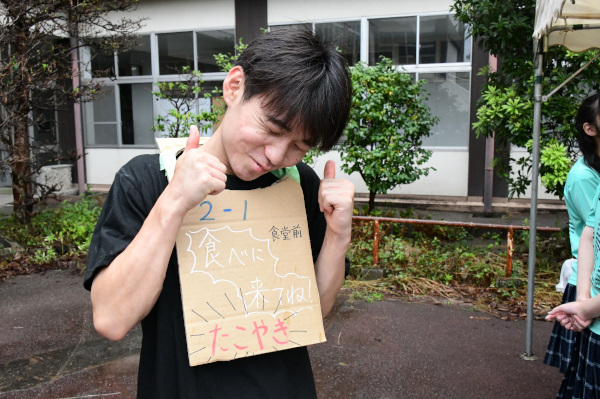 2-1
食堂前
食べに
来てね!
たこやき